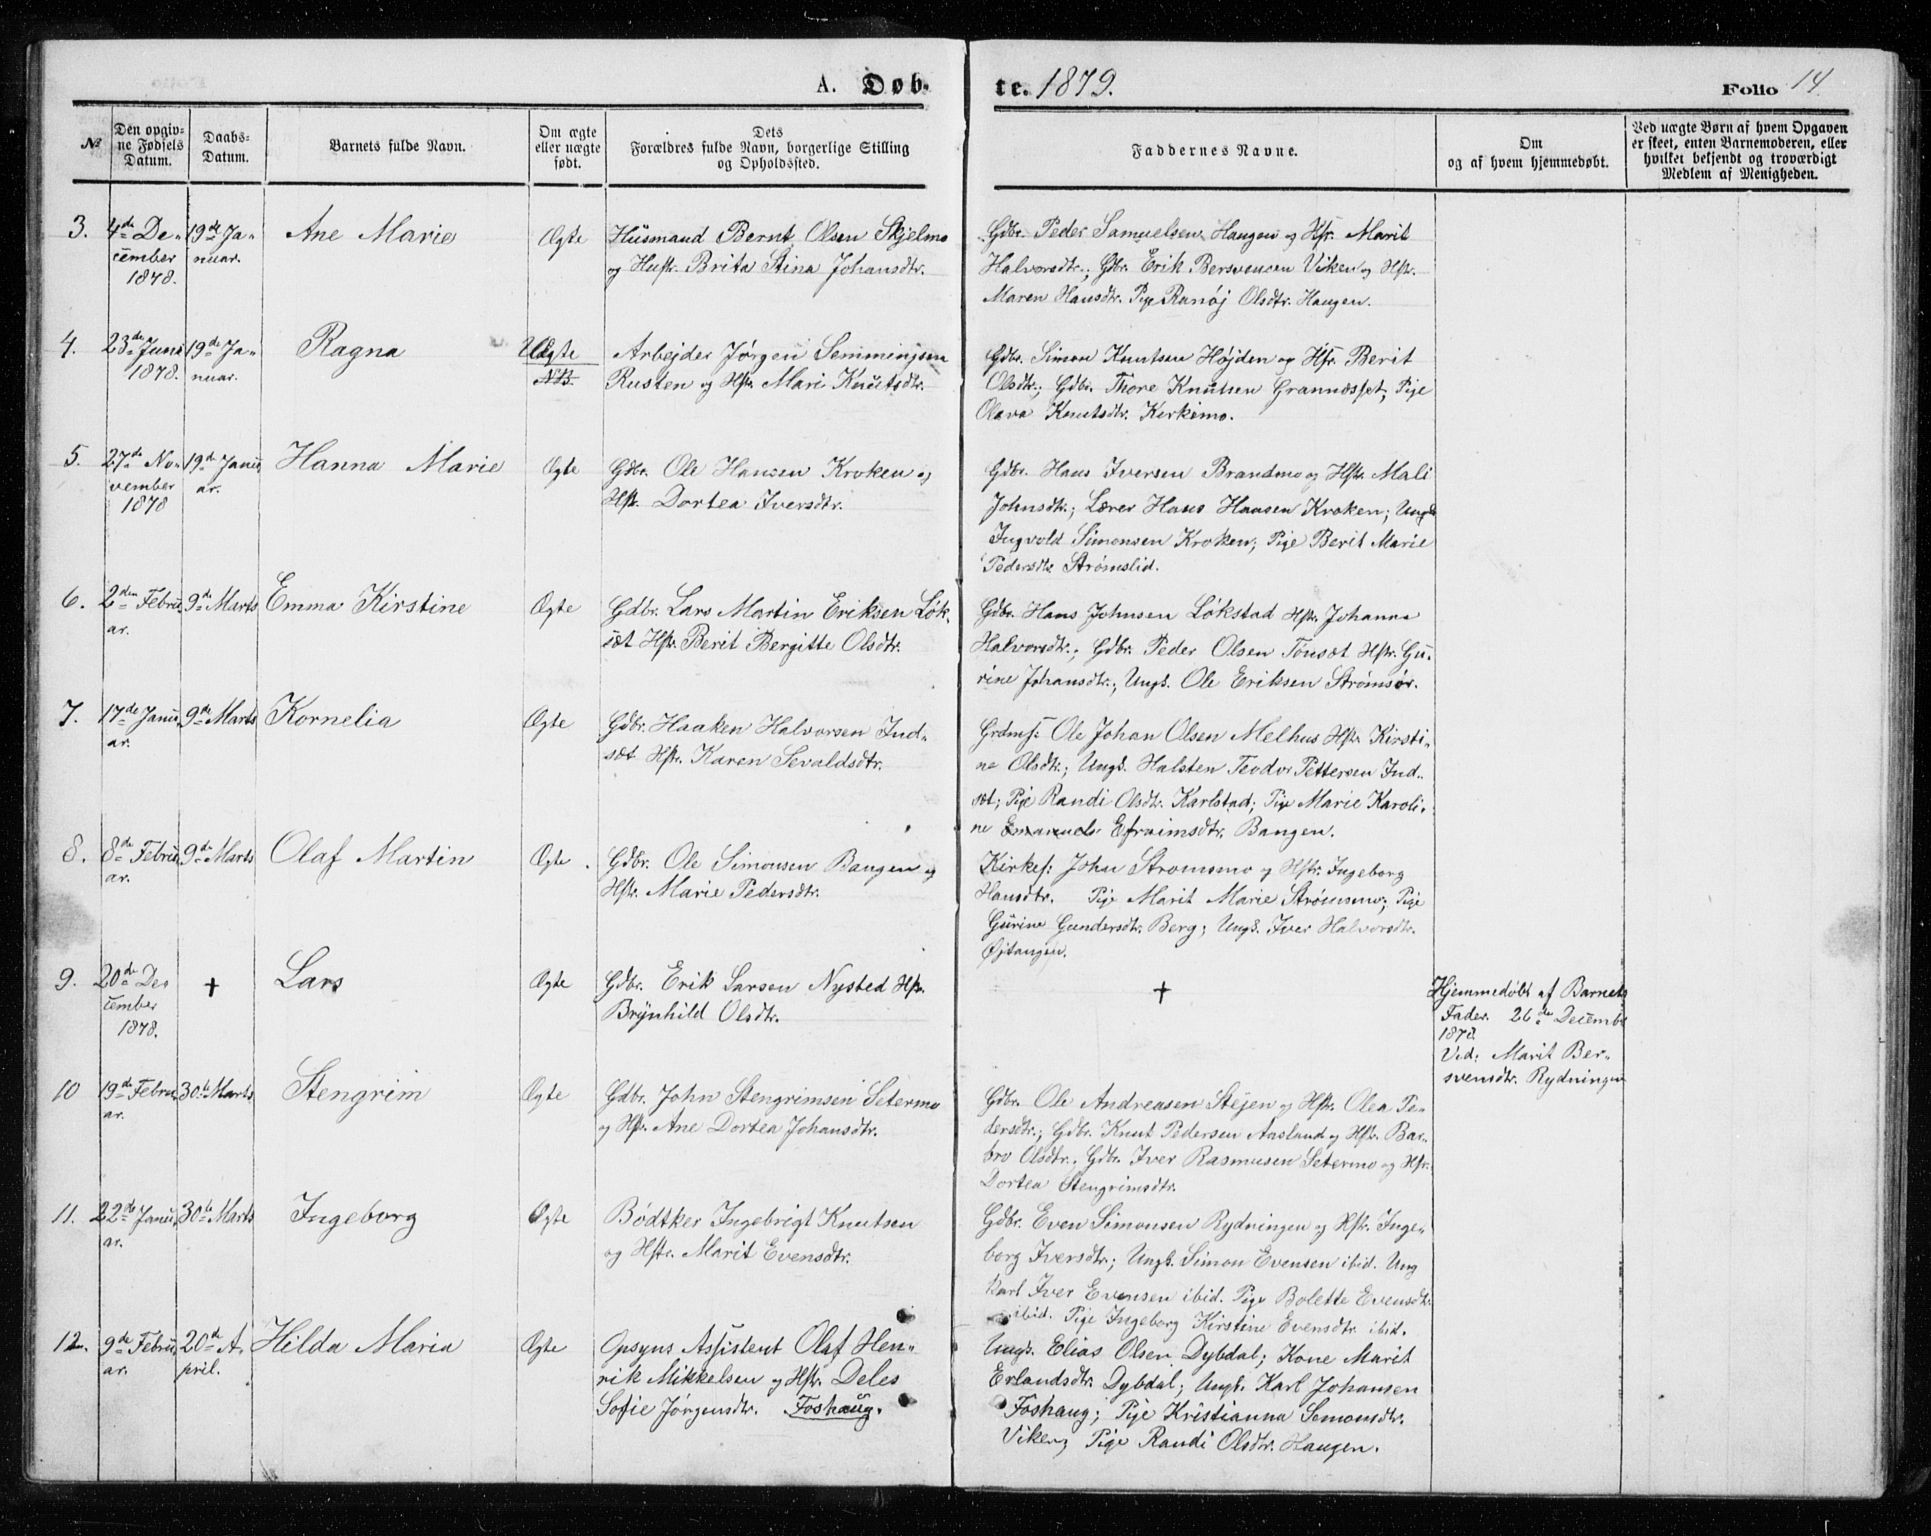 A. Døb- te. 1879. Folio 14
№
Den opgiv-
ne Fødsels
Datum.
Daabs-
Datum.
Barnets fulde Navn.
Om ægte
eller uægte
født.
Dets
Forældres fulde Navn, borgerlige Stilling
og Opholdssted.
Faddernes Navne.
Om
og af hvem hjemmedøbt.
Ved uægte Børn af hvem Opgaven
er skeet, enten Barnemoderen, eller
hvilket bekjendt og troværdigt
Medlem af Menigheden.
3.
4de De-
cember
1878.
19de Ja-
nuar.
Ane Marie
Ægte
Husmand Bernt Olsen Skjelmo
og Hustr. Brita Stina Johansdtr.
Gdbr. Peder Samuelsen Haugen og Hfr. Marit
Halvorsdtr.; Gdbr. Erik Bersvensen Viken og Hstr.
Maren Hansdtr. Pige Ranøj Olsdtr. Haugen.
4.
23de Juni
1878.
19de Ja-
nuar.
Ragna
Uægte
NB.
Arbejder Jørgen Semmingsen
Rusten og Hstr. Mari Knutsdtr.
Gdbr. Simon Knutsen Højden og Hfr. Berit
Olsdtr.; Gdbr. Thore Knutsen Grannæsset, Pige
Olava Knutsdtr. Kirkemo.
5.
27de No-
vember
1878
19de Janu
ar.
Hanna Marie
Ægte
Gdbr. Ole Hansen Kroken og
Hstr. Dortea Iversdtr.
Gdbr. Hans Iversen Brandmo og Hstr. Mali
Johnsdtr.; Lærer Hans Hansen Kroken; Ungk
Ingvold Simonsen Kroken; Pige Berit Marie
Pedersdtr. Strømslid.
6.
2den Febru
ar.
9de Marts
Emma Kirstine
Ægte
Gdbr. Lars Martin Eriksen Løk-
sæt Hstr. Berit Bergitte Olsdtr.
Gdbr. Hans Johnsen Løkstad Hstr. Johanna
Halvorsdtr.; Gdbr. Peder Olsen Tønsæt Hstr. Gu-
rine Johansdtr.; Ungk. Ole Eriksen Strømsør.
7.
17de Janu
ar.
9de Marts
Kornelia
Ægte
Gdbr. Haaken Halvorsen Ind-
sæt Hstr. Karen Sevaldsdtr.
Grdmf: Ole Johan Olsen Melhus Hstr. Kirsti-
ne Olsdtr.; Ungk. Halsten Teodor Pettersen Ind-
sæt; Pige Randi Olsdtr. Karlstad; Pige Marie Karoli-
ne Efraimsdtr. Bangen.
8.
8de Febru
ar.
9de Marts
Olaf Martin
Ægte
Gdbr. Ole Simonsen Bangen og
Hstr. Marie Pedersdtr.
Kirkes: John Strømsmo og Hstr. Ingeborg
Hansdtr. Pige Marit Marie Strømsmo; Pige
Gurine Gundersdtr. Berg; Ungk. Iver Halvorsdtr.
Øjtangen.
9.
20de De-
cember
1878.
+
Lars
Ægte
Gdbr. Erik Larsen Nysted Hstr.
Brynhild Olsdtr.
+
Hjemmedøbt af Barnets
Fader. 26de Decembr
1878
Vid: Marit Ber-
svensdtr. Rydningen
10
19de Febru
ar.
30te Marts
Stengrim
Ægte
Gdbr. John Stengrimsen Setermo
og Hstr. Ane Dortea Johansdtr.
Gdbr. Ole Andreasen Stejen og Hstr. Olea Pe-
dersdtr.; Gdbr. Knut Pedersen Aasland og Hstr. Bar-
bro Olsdtr.; Gdbr. Iver Rasmusen Setermo og Hstr.
Dortea Stengrimsdtr.
11.
22de Janu
ar.
30te Marts
Ingeborg
Ægte
Bødtker Ingebrigt Knutsen
og Hstr. Marit Evensdtr.
Gdbr. Even Simonsen Rydningen og Hstr. Inge-
borg Iversdtr.; Ungk. Simon Evensen ibid. Ung
karl Iver Evensen ibid. Pige Bolette Evensdtr.
ibid. Pige Ingeborg Kirstine Evensdtr. ibid.
12.
9de Febru
ar.
20de A-
pril.
Hilda Maria
Ægte
Opsyns Assistent Olaf Hen-
rik Mikkelsen og Hstr. Deles
Sofie Jørgensdtr. Foshaug.
Ungk. Elias Olsen Dybdal; Kone Marit
Erlandsdtr. Dybdal; Ungk. Karl Johansen
Foshaug; Pige Kristianna Semonsdtr.
Viken; Pige Randi Olsdtr. Haugen.